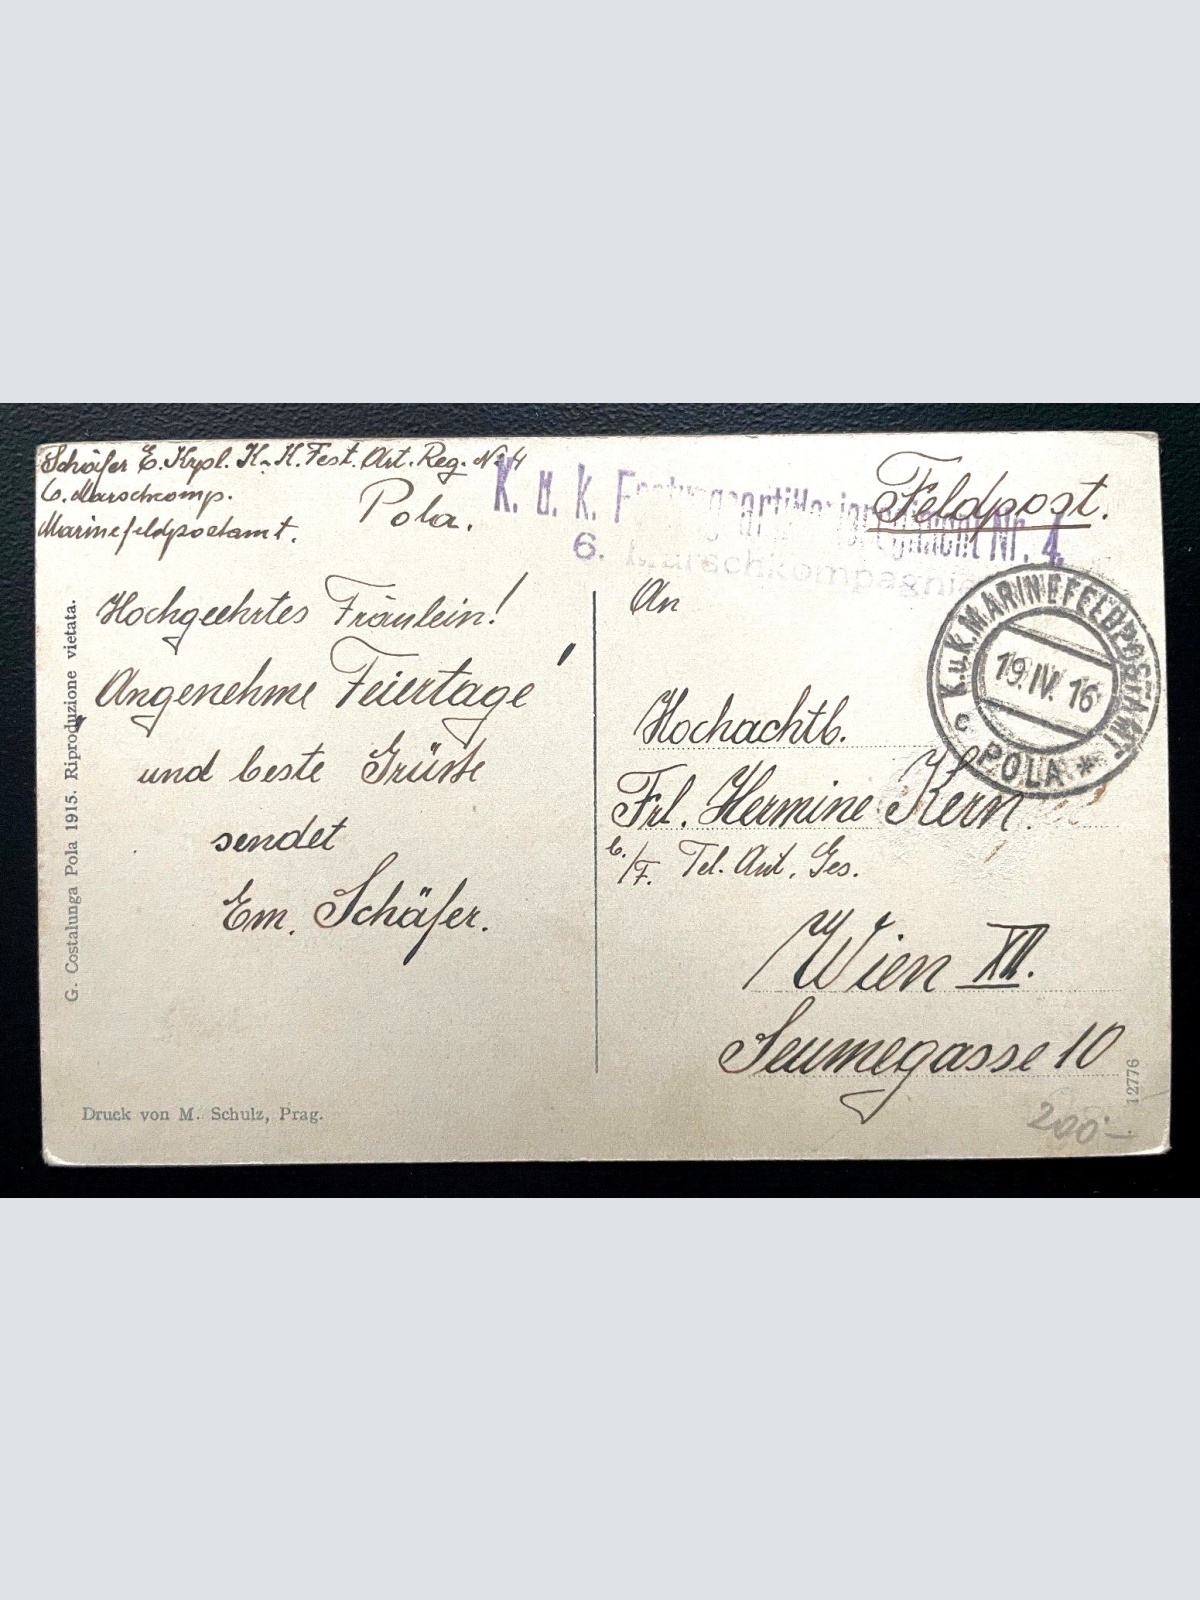 Schäfer E. Krpl. K. K. Fest. Art. Reg. No 4
6. Marschkomp. Pola.
Marinefeldpostamt.
K. u. k. Festungsartillerieregiment Nr. 4.
6. Marschkompagnie
Feldpost.
K.u.K. MARINEFELDPOSTAMT
19.IV.16
c POLA *
Hochgeehrtes Fräulein!
"Angenehme Feiertage"
und beste Grüsse
sendet
Em. Schäfer.
An
Hochachtb.
Frl. Hermine Kern.
Wien XII.
Seumegasse 10
G. Costalunga Pola 1915. Riproduzione vietata.
Druck von M. Schulz, Prag.
12776
200.-